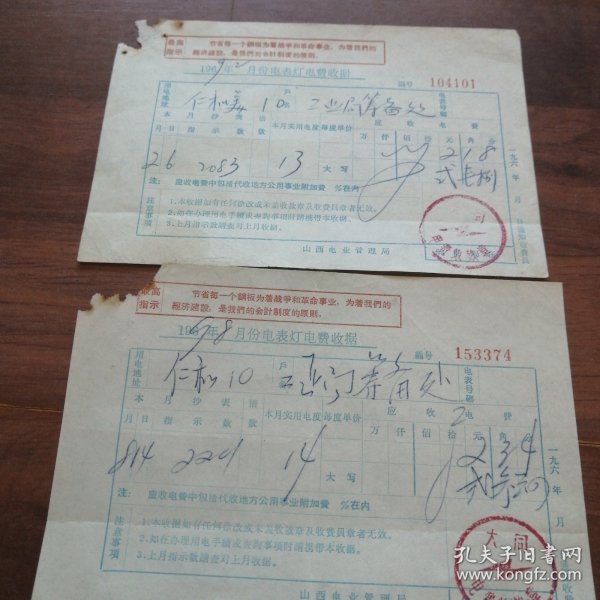 最高指示
节省每一个銅板为着战爭和革命事业，为着我們的
經济建設，是我們的会計制度的原则。
196 年 2 月份电表灯电费收据
編号 104101
用电地址 仁和 10
戶名
电表号碼
本月抄表
本月实用电度
每度单价
应收电费
月 日 指示数 倍数
万 仟 佰 拾 元 角 分
26 2083 13 大写 218
注: 应收电费中包括代收地方公用事业附加費 %在內
注意事項
1.本收据如有任何涂改或未盖收款章及收費員章者无效。
2.如在办理用电手續或查詢事項时請携带本收据。
3.上月指示数請查对上月收据。
山西电业管理局
一九六 年 月
最高指示
节省每一个銅板为着战爭和革命事业，为着我們的
經济建設，是我們的会計制度的原则。
196 年 8 月份电表灯电费收据
編号 153374
用电地址 仁和 10
戶名
电表号碼
本月抄表
本月实用电度
每度单价
应收电费
月 日 指示数 倍数
万 仟 佰 拾 元 角 分
814 2201 14 大写 234
注: 应收电费中包括代收地方公用事业附加費 %在內
注意事項
1.本收据如有任何涂改或未盖收款章及收費員章者无效。
2.如在办理用电手續或查詢事項时請携带本收据。
3.上月指示数請查对上月收据。
山西电业管理局
一九六 年 月
大同
孔夫子旧书网
www.kongfz.com